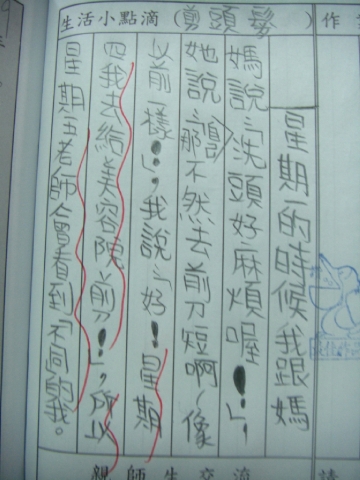 生活小點滴（剪頭髮）
作
星期一的時候我跟媽
媽說:「洗頭好麻煩喔！」,
她說:「那不然去剪短啊～像
以前一樣！」,我說:「好！星期
四我去給美容院剪！」,所以
星期五老師會看到「不同的我。
親師生交流
請